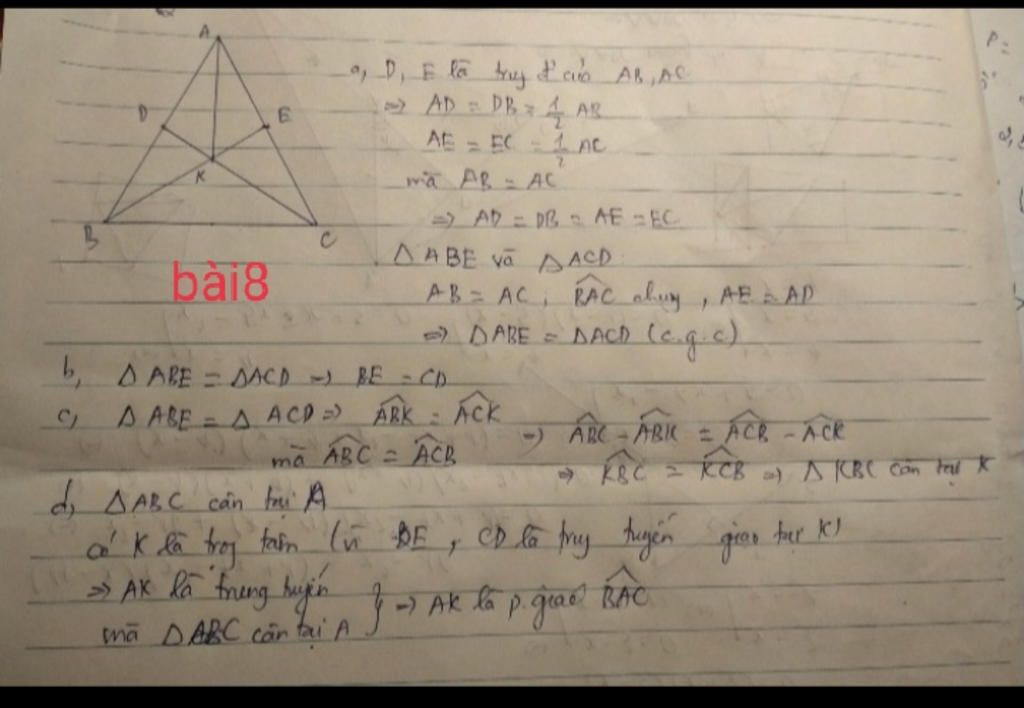 A
D
E
K
B
C
bài8
a, D, E là trug đ' của AB, AC
=> AD = DB = 1/2 AB
AE = EC = 1/2 AC
mà AB = AC
=> AD = DB = AE = EC
△ ABE và △ ACD
AB = AC ; BAC chug , AE = AD
=> △ABE = △ACD (c.g.c)
b, △ ABE = △ACD => BE = CD
c, △ ABE = △ ACD => ABK = ACK
mà ABC = ACB
=> ABC - ABK = ACB - ACK
=> KBC = KCB => △ KBC cân tại K
d, △ABC cân tại A
có K là trog tâm (vì BE , CD là trug tuyến giao tại K)
=> AK là trung tuyến
mà △ABC cân tại A } => AK là p.giác BAC
P =